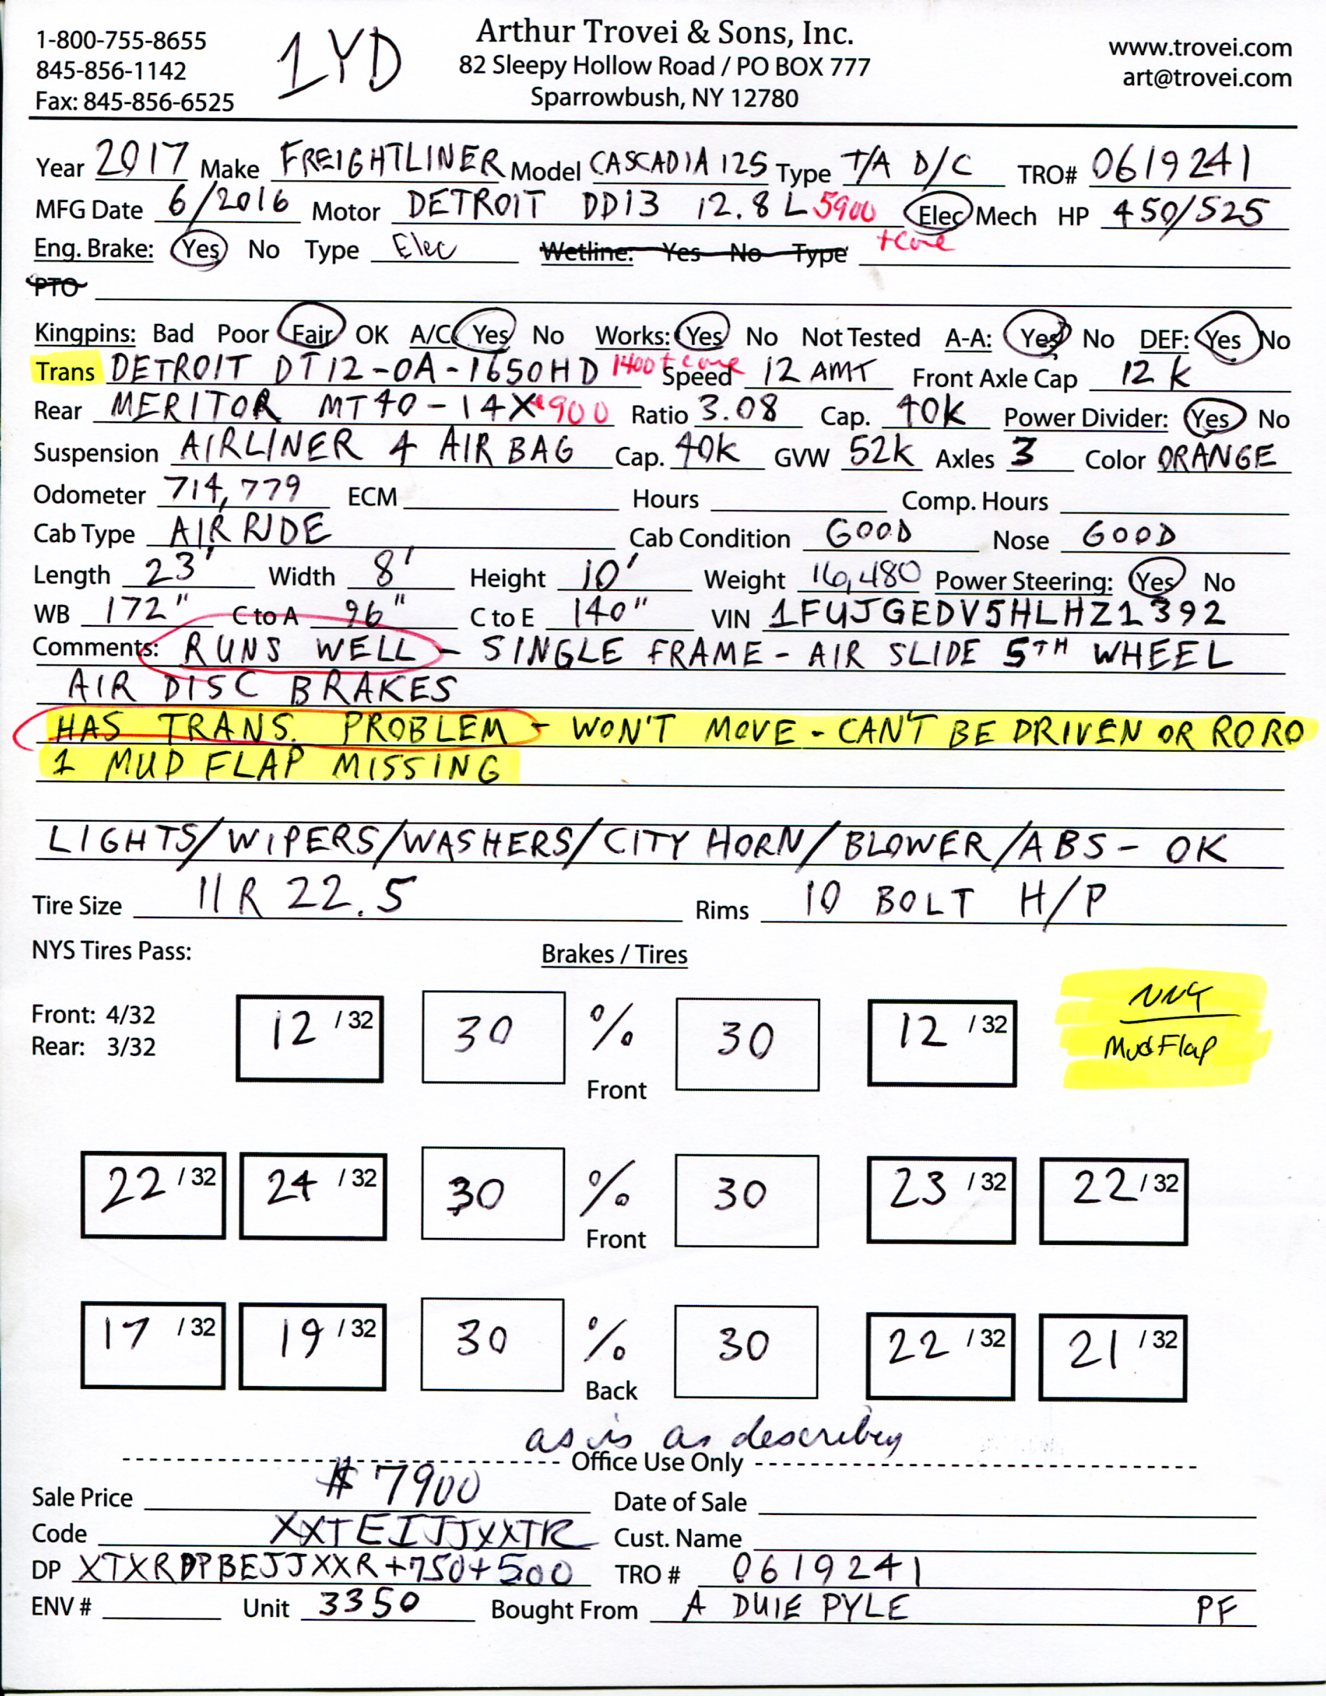 1-800-755-8655
845-856-1142
Fax: 845-856-6525
1YD
Arthur Trovei & Sons, Inc.
82 Sleepy Hollow Road / PO BOX 777
Sparrowbush, NY 12780
www.trovei.com
art@trovei.com
Year 2017 Make FREIGHTLINER Model CASCADIA 125 Type T/A D/C TRO# 0619241
MFG Date 6/2016 Motor DETROIT DD13 12.8L 5900 Elec Mech HP 450/525
+core
Eng. Brake: Yes No Type Elec Wetline: Yes No Type
PTO
Kingpins: Bad Poor Fair OK A/C Yes No Works: Yes No Not Tested A-A: Yes No DEF: Yes No
Trans DETROIT DT12-OA-1650HD 1400+core Speed 12 AMT Front Axle Cap 12K
Rear MERITOR MT40-14X 900 Ratio 3.08 Cap. 40K Power Divider: Yes No
Suspension AIRLINER 4 AIR BAG Cap. 40K GVW 52K Axles 3 Color ORANGE
Odometer 714,779 ECM Hours Comp. Hours
Cab Type AIR RIDE Cab Condition GOOD Nose GOOD
Length 23' Width 8' Height 10' Weight 16,480 Power Steering: Yes No
WB 172" C to A 96" C to E 140" VIN 1FUJGEDV5HLHZ1392
Comments: RUNS WELL - SINGLE FRAME - AIR SLIDE 5TH WHEEL
AIR DISC BRAKES
HAS TRANS. PROBLEM - WON'T MOVE - CAN'T BE DRIVEN OR RORO
1 MUD FLAP MISSING
LIGHTS/WIPERS/WASHERS/CITY HORN/BLOWER/ABS - OK
Tire Size 11R 22.5 Rims 10 BOLT H/P
NYS Tires Pass: Brakes / Tires
Front: 4/32
Rear: 3/32
12 /32 30 % 30 12 /32
Front
NNG
Mud Flap
22 /32 24 /32 30 % 30 23 /32 22 /32
Front
17 /32 19 /32 30 % 30 22 /32 21 /32
Back
as is as describey
Office Use Only
Sale Price $7900 Date of Sale
Code XXTEIJJXXTR Cust. Name
DP XTXRDPBEJJXXR+750+500 TRO # 0619241
ENV # Unit 3350 Bought From A DUIE PYLE PF